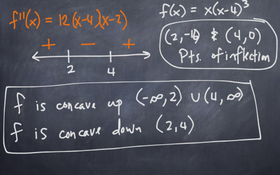 f''(x) = 12(x-4)(x-2)
+ - +
2 4
f(x) = x(x-4)³
(2, -16) & (4,0)
Pts. of inflection
f is concave up (-∞,2) ∪ (4, ∞)
f is concave down (2,4)